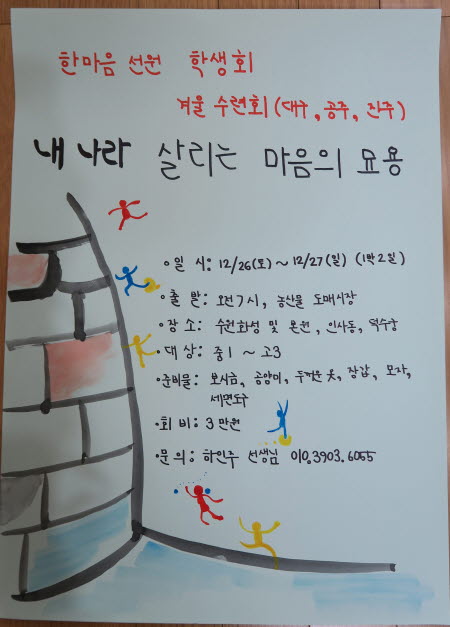 한마음 선원 학생회
겨울 수련회 (대구, 공주, 진주)
내 나라 살리는 마음의 묘용
○일 시: 12/26(토)~12/27(일) (1박2일)
○출 발: 오전 7시, 농산물 도매시장
○장 소: 수원화성 및 본원, 인사동, 덕수궁
·대 상: 중1 ~ 고3
·준비물: 보시금, 공양미, 두꺼운 옷, 장갑, 모자,
세면도구
·회 비: 3만원
·문 의: 하인주 선생님 010.3903.6055